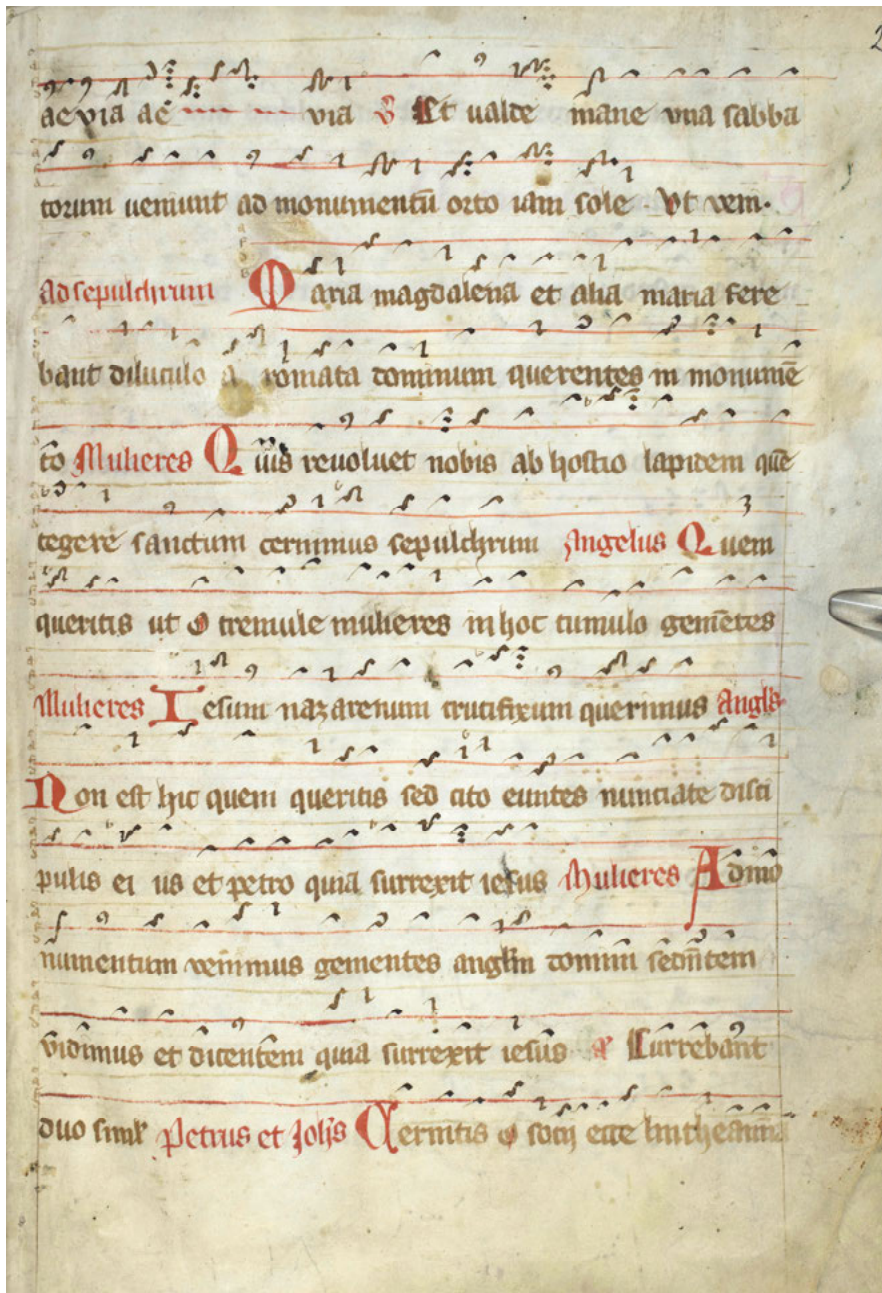 aeviā aē via v Et valde mane una sabba
torum veniunt ad monumentū orto iam sole . Ut vem.
Ad sepulchrum Maria magdalena et alia maria fere
bant diluculo aromata dominum querentes in monumē
to Mulieres Quis revoluet nobis ab hostio lapidem quē
tegere sanctum cernimus sepulchrum Angelus Quem
queritis ut o tremule mulieres in hoc tumulo gementes
Mulieres Iesum nazarenum crucifixum querimus Angls
Non est hic quem queritis sed cito euntes nunciate disci
pulis eius et petro quia surrexit iesus Mulieres Ad mo
numentum venimus gementes anglm domini sedentem
vidimus et dicentem quia surrexit iesus Currebant
duo simul Petrus et Johs Cernitis o socii ecce lintheamina